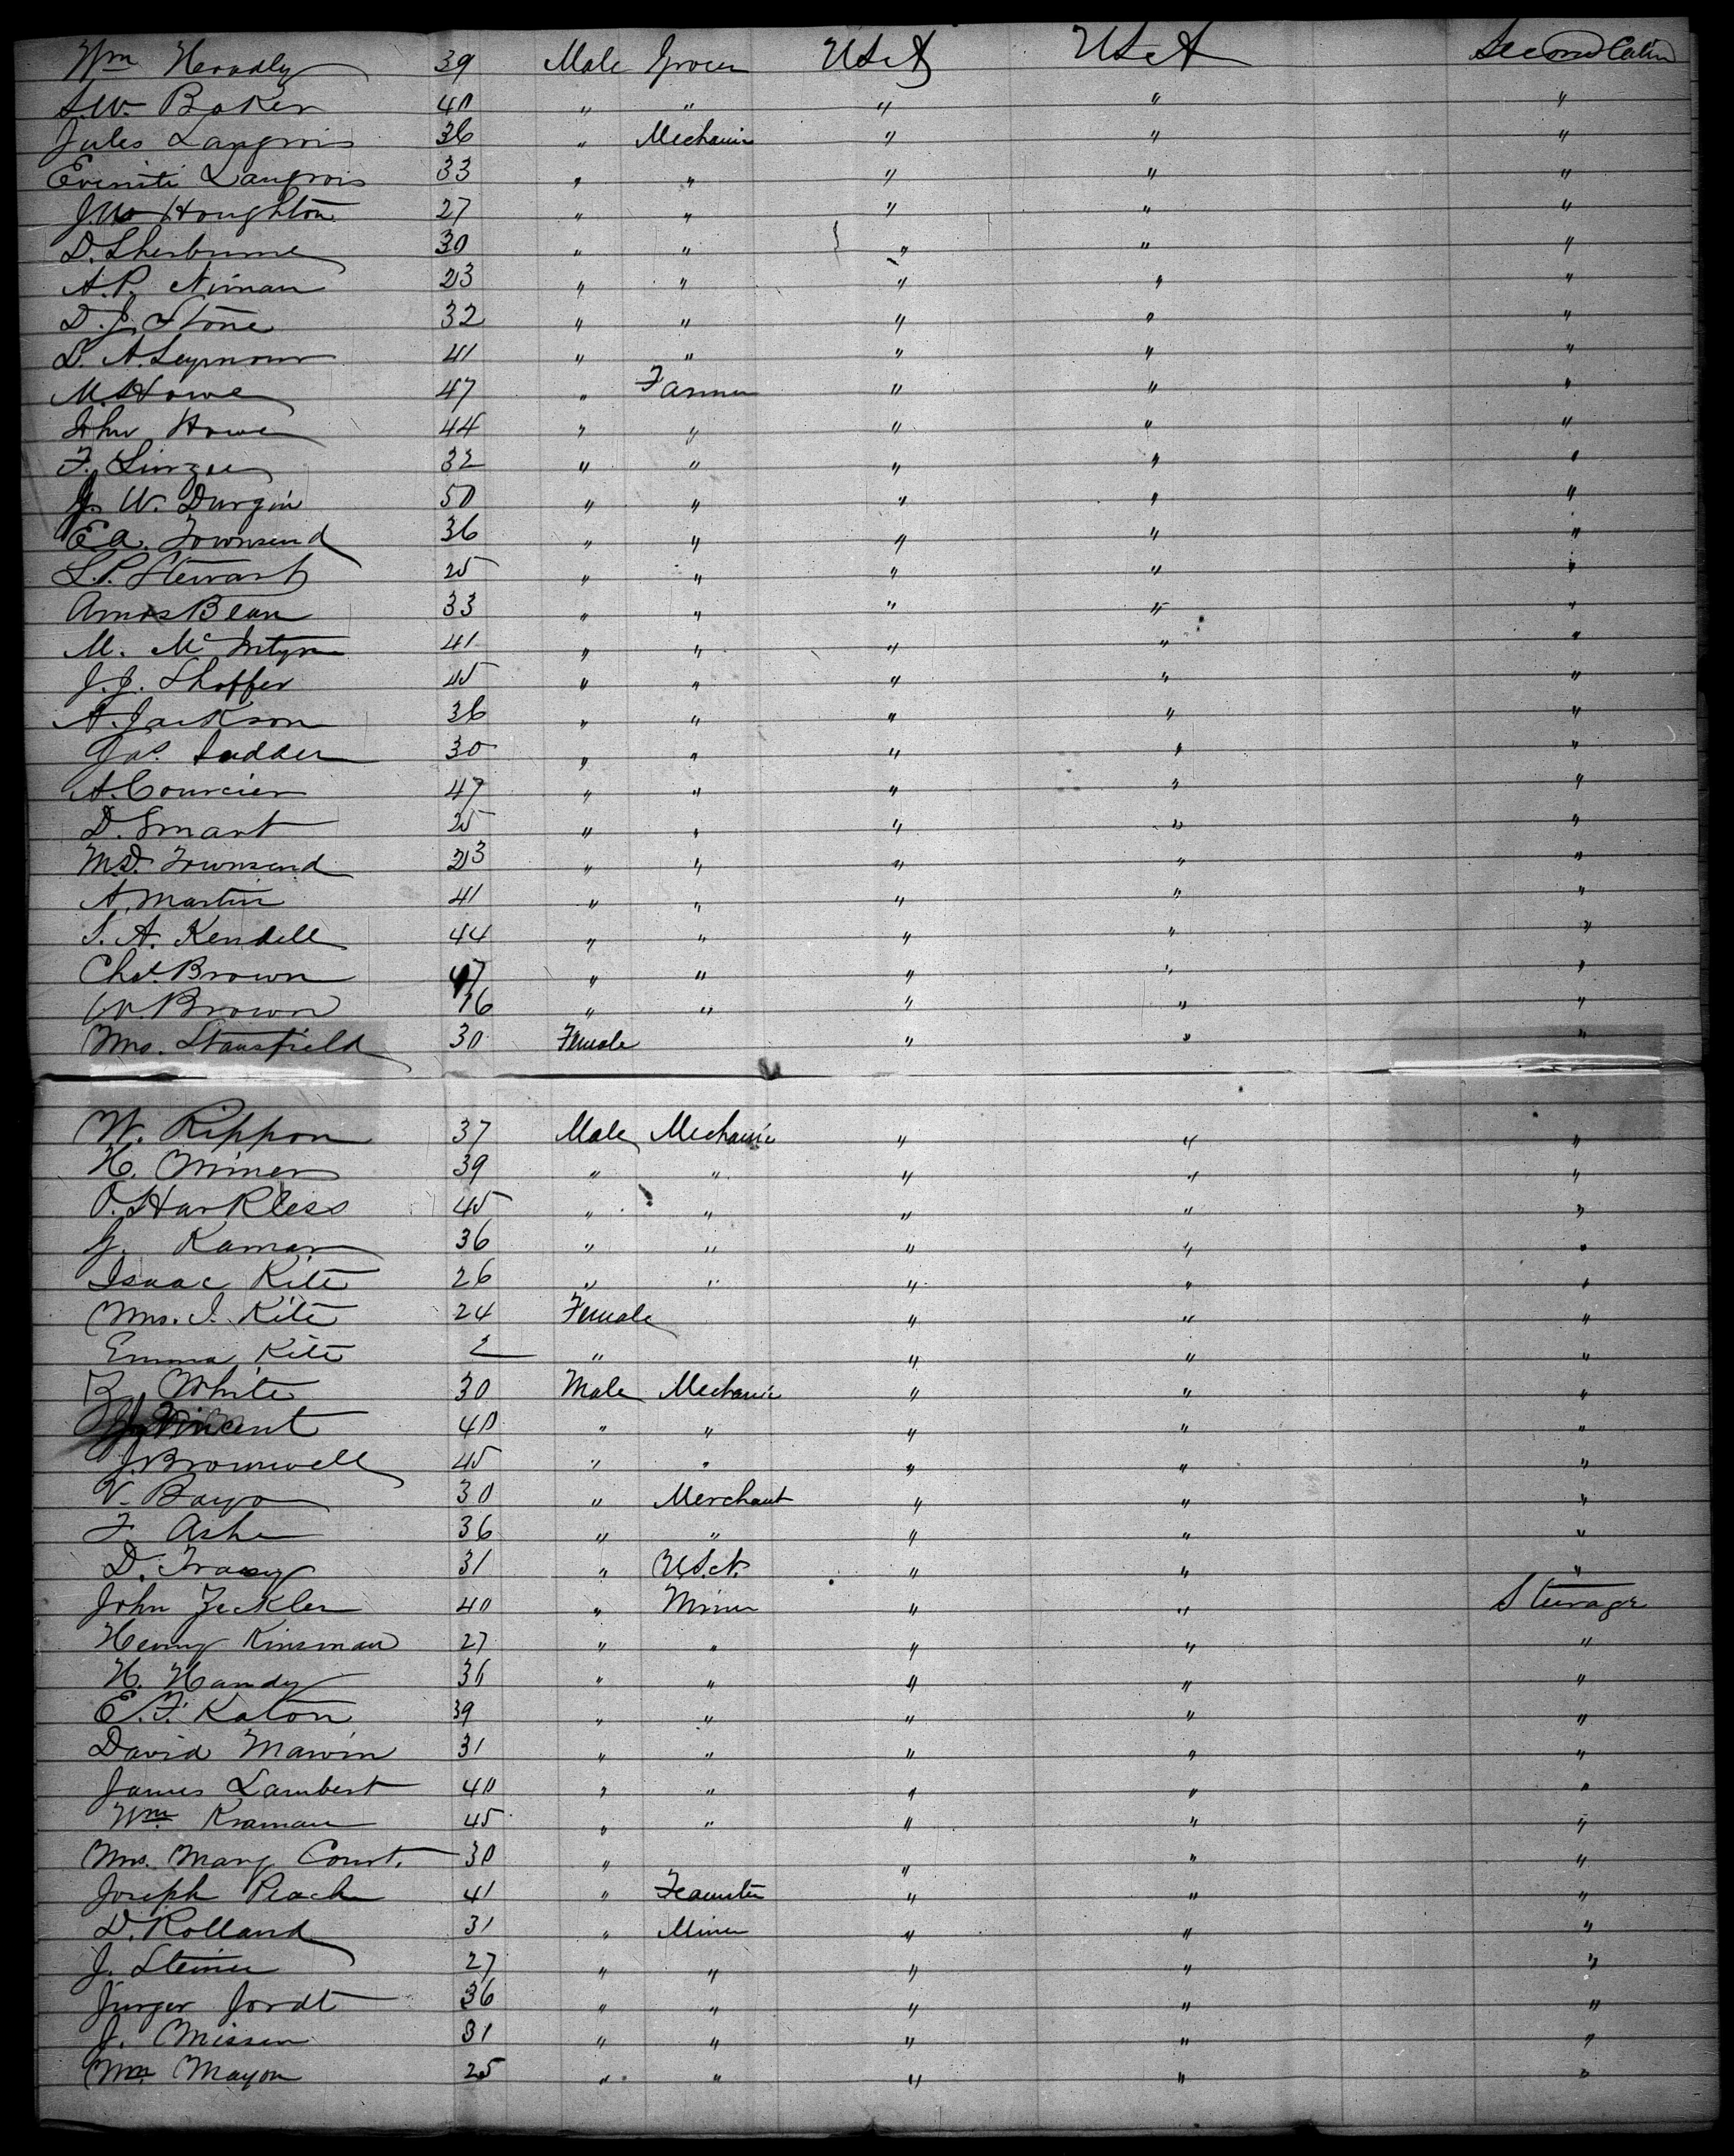 Wm Headly 39 Male Grocer U.S.A U.S.A Second Cabin
S.W. Baker 40 " " " " "
Jules Langrois 36 " Mechanic " " "
Langrois 33 " " " " "
Houghton 27 " " " " "
D. Sherburne 30 " " " " "
A.P. Niman 23 " " " " "
D.J. Stone 32 " " " " "
A. Seymour 41 " " " " "
M. Howe 47 " Farmer " " "
John Howe 44 " " " " "
F. Linzee 32 " " " " "
J. W. Durgin 50 " " " " "
E.A. Townsend 36 " " " " "
L.P. Stewart 25 " " " " "
Amos Bean 33 " " " " "
M. McIntyre 41 " " " " "
J.J. Shoffer 45 " " " " "
A. Jackson 36 " " " " "
Jas. 30 " " " " "
A. Courcier 47 " " " " "
D. Smart 25 " " " " "
M.D. Townsend 23 " " " " "
A. Martin 41 " " " " "
S. A. Kendell 44 " " " " "
Chas. Brown 47 " " " " "
W. Brown 16 " " " " "
Mrs. Stansfield 30 Female " " "
W. Rippon 37 Male Mechanic " " "
H. Miner 39 " " " " "
O. Harkless 45 " " " " "
J. Kaman 36 " " " " "
Isaac Kite 26 " " " " "
Mrs. I. Kite 24 Female " " "
Emma Kite 2 " " " "
White 30 Male Mechanic " " "
Vincent 40 " " " " "
J. Brownwell 45 " " " " "
V. Bayo 30 " Merchant " " "
F. Ashe 36 " " " " "
D. Tracy 31 " U.S.N. " " "
John Zeckler 40 " Miner " " Steerage
Henry Kinsman 27 " " " " "
H. Handy 36 " " " " "
E.F. Katon 39 " " " " "
David Marvin 31 " " " " "
James Lambert 40 " " " " "
Wm. Kraman 45 " " " " "
Mrs. Mary Court. 30 " " " "
Joseph Peach 41 " Teamster " " "
D. Rolland 31 " Miner " " "
J. Steiner 27 " " " " "
Jurger Jordt 36 " " " " "
J. Missen 31 " " " " "
Wm Mayon 25 " " " " "